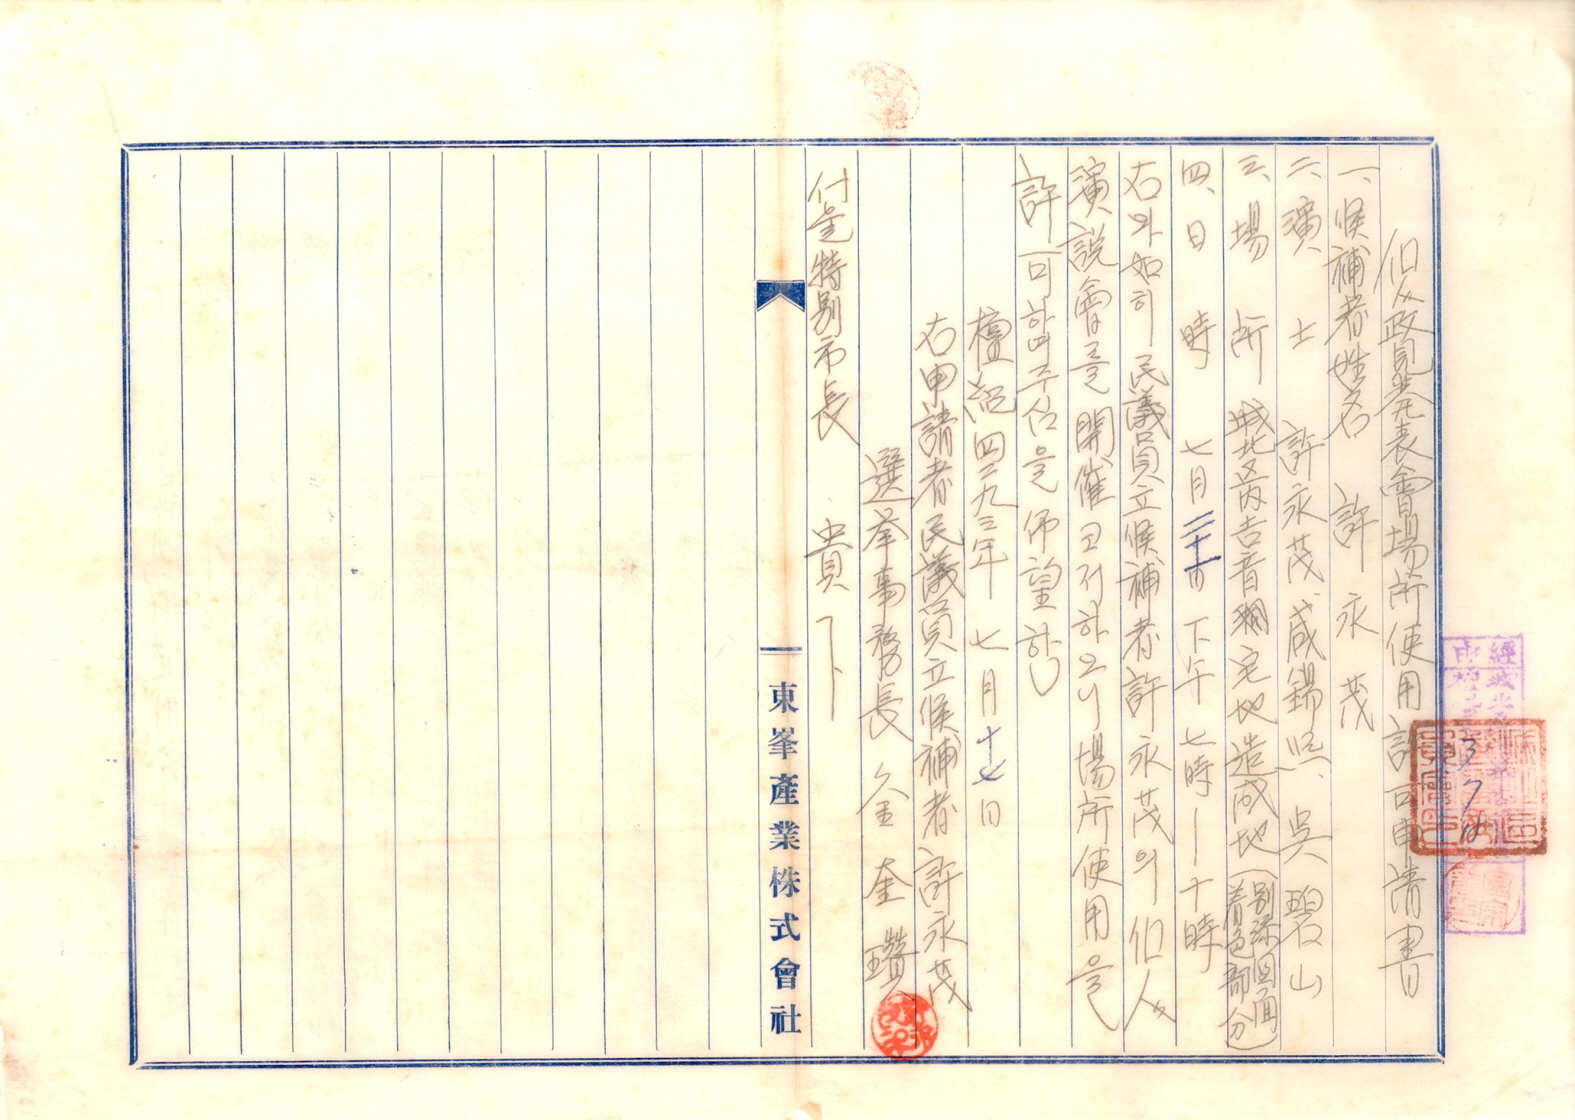 個人政見発表會場所使用許可申請書
一、候補者姓名 許永茂
二、演士 許永茂、咸錫熙、吳碧山
三、場所 城北區內吉音洞宅地造成地(別添図面着色部分)
四、日時 七月二十日 下午七時—十時
右와如히 民議員立候補者 許永茂의 個人
演説會를 開催코저하오니 場所使用을
許可하여주심을 仰望함
檀紀四二九三年 七月十七日
右申請者民議員立候補者 許永茂
選挙事務長 金奎瓚
서울特別市長 貴下
東峯產業株式會社